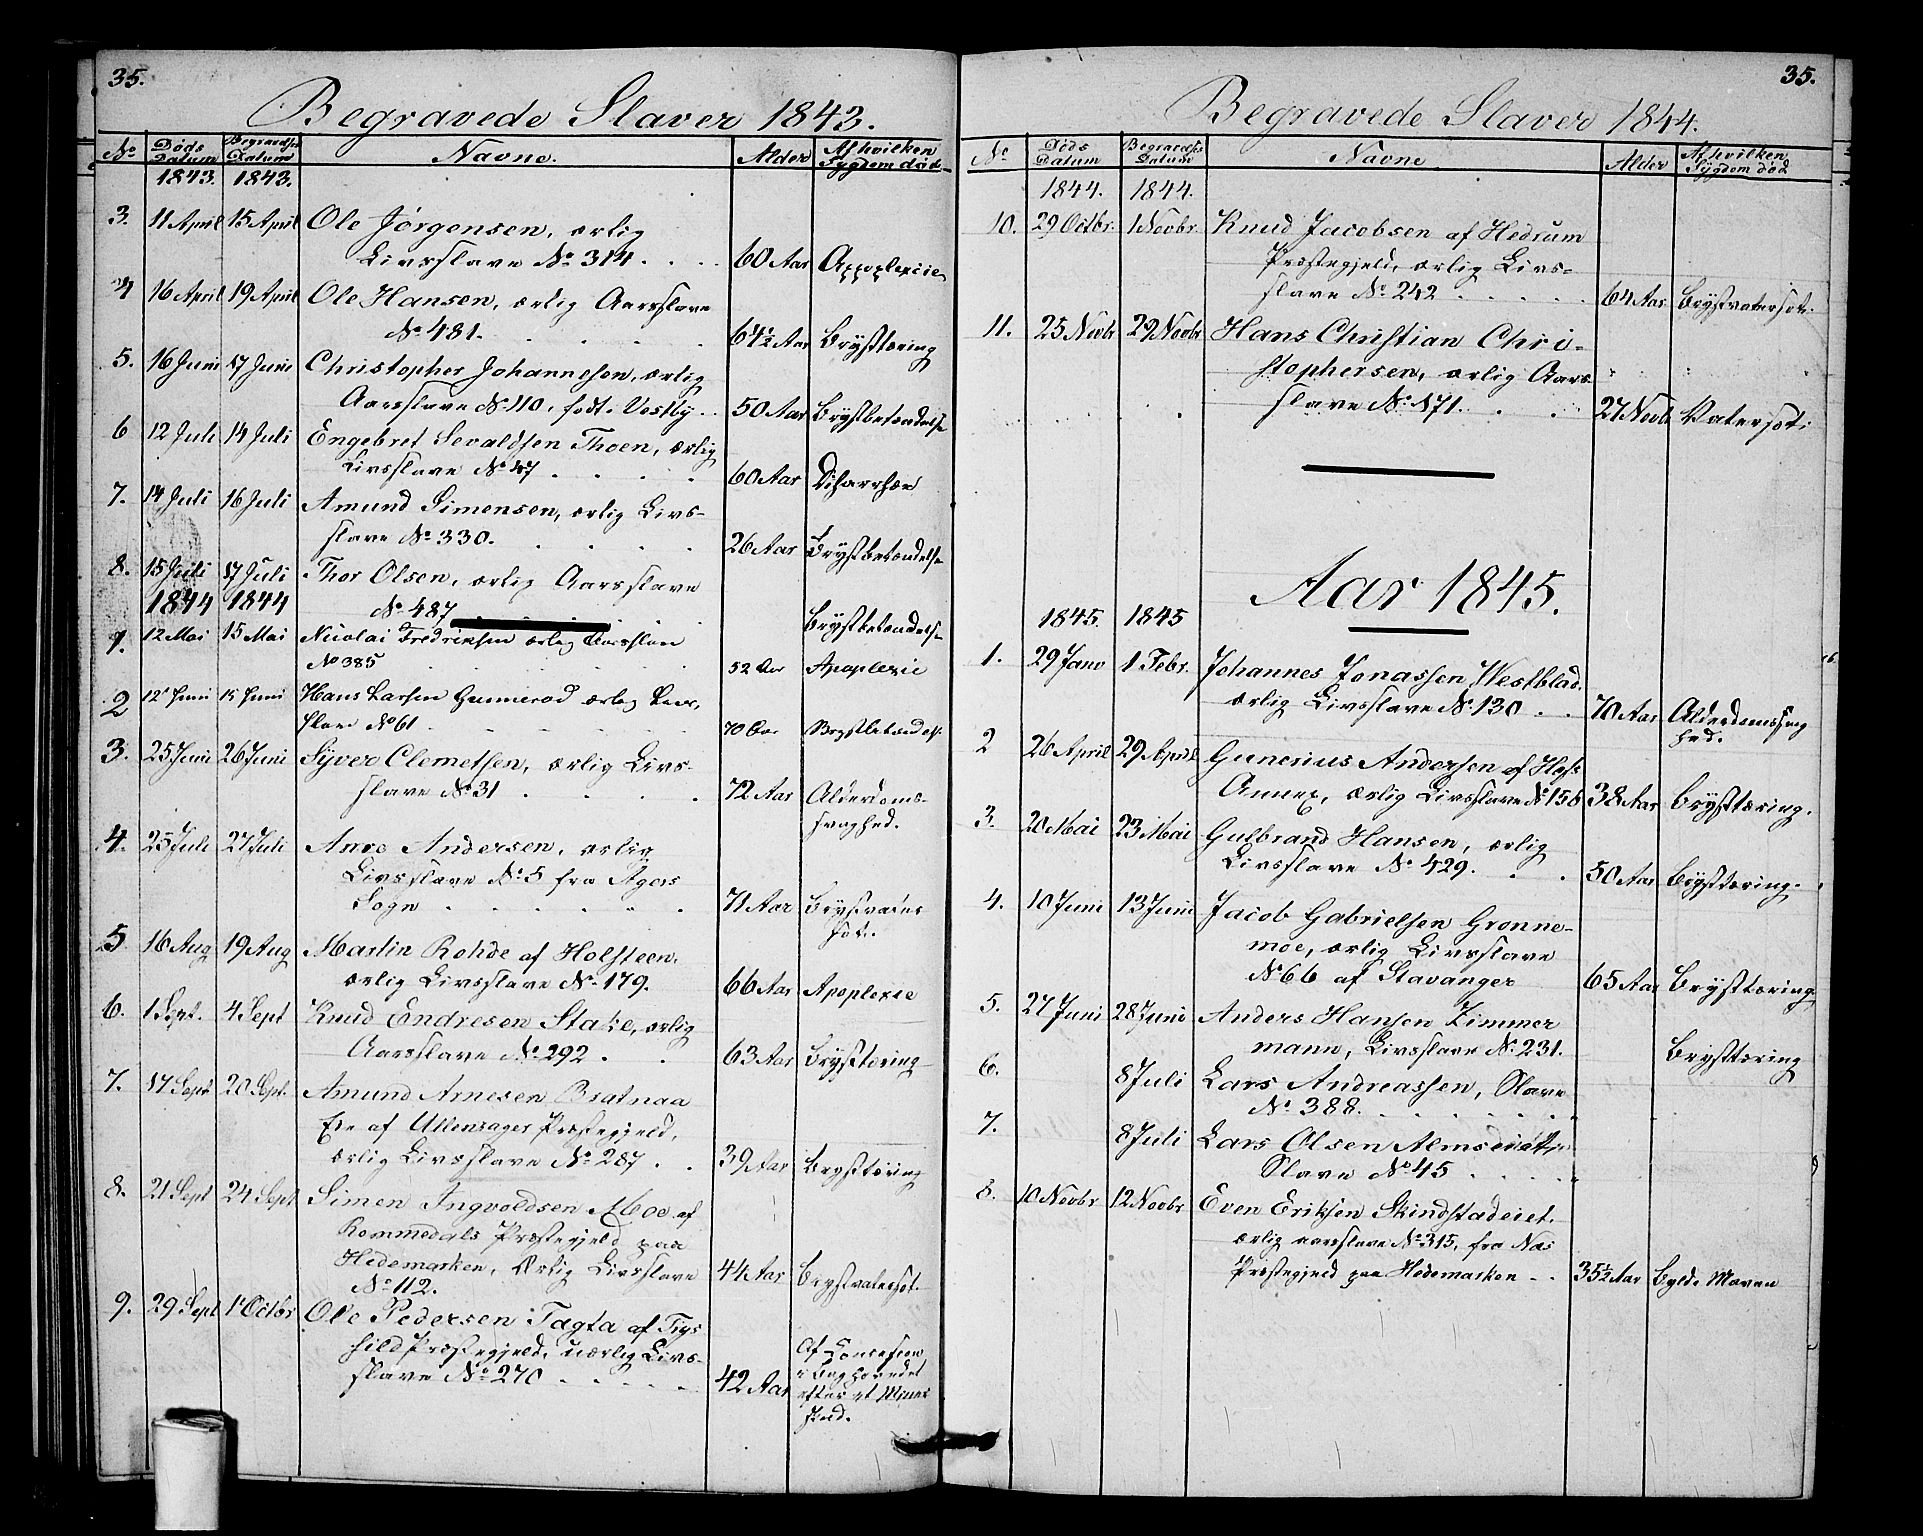 35.
Begravede Slaver 1843.
No Døds Datum Begravelses Datum Navne. Alder Af hvilken Sygdom død
1843. 1843.
3. 11 April 15 April Ole Jørgensen, ærlig
Livsslave No 314 . . . 60 Aar Appoplexie
4 16 April 19 April Ole Hansen, ærlig Aarsslave
No 481. . . . . 64½ Aar Brysttæring
5. 16 Juni 17 Juni Christopher Johannesen, ærlig
Aarsslave No 110, født. Vestby . . 50 Aar Brystbetændelse
6 12 Juli 14 Juli Engebret Sevaldsen Thoen, ærlig
Livsslave No 47 . . . . 60 Aar Diharrhæe
7. 14 Juli 16 Juli Amund Simensen, ærlig Livs-
slave No 330. . . . . 26 Aar Brystbetændelse
8. 15 Juli 17 Juli Thor Olsen, ærlig Aarsslave
1844 1844 No 487 Brystbetændelse
1. 12 Mai 15 Mai Nicolai Fredriksen ærlig Aarsslave
No 385 52 Aar Apoplexie
2 12 Juni 15 Juni Hans Larsen Gunnerød ærlig Livs,
slave No 61 . 70 Aar Brystbetændelse
3. 25 Juni 26 Juni Syver Clemetsen, ærlig Livs-
slave No 31 . . . . 72 Aar Alderdoms-
svaghed.
4. 25 Juli 27 Juli Arne Andersen, ærlig
Livsslave No 5 fra Agers
Sogn . . . . . 71 Aar Brystvater
sot.
5 16 Aug 19 Aug Martin Rohde af Holsteen.
ærlig Livsslave No 179. 66 Aar Apoplexie
6. 1 Sept. 4 Sept Knud Endresen Stake, ærlig
Aarsslave No 292 . . 63 Aar Brysttæring
7. 17 Sept 20 Sept. Amund Arnesen Bratnaa
Eie af Ullensager Præstegjeld,
ærlig Livsslave No 287 . . 39 Aar Brysttæring
8. 21 Sept 24 Sept Simen Ingvoldsen Moe af
Rommedals Præstegjeld paa
Hedemarken, Ærlig Livsslave 44 Aar Brystvatersot.
No 112.
9. 29 Sept 1 Octbr Ole Pedersen Tagta af Trys
sild Præstegjeld, uærlig Livs-
slave No 270 . . . . . 42 Aar Af
i Baghovedet
efter et
35.
Begravede Slaver 1844.
No Døds Datum Begravelses Datum Navne Alder Af hvilken Sygdom død
1844. 1844.
10. 29 Octbr. 1 Novbr. Knud Jacobsen af Hedrum
Præstegjeld, ærlig Livs-
slave No 242 . . . . 64 Aar Brystvatersot.
11. 25 Novbr 29 Novbr Hans Christian Chri-
stophersen, ærlig Aars
slave No 471. . . 27 Novbr Vatersot.
Aar 1845.
1845. 1845
1. 29 Janv 1 Febr. Johannes Jonassen Westblad.
ærlig Livsslave No 130 . . 70 Aar Alderdomssvag
hed.
2 26 April 29 April Gunerius Andersen af Hofs
Annex, ærlig Livsslave No 156 38 Aar Brysttæring.
3. 20 Mai 23 Mai Gulbrand Hansen, ærlig
Livsslave No 429. . . 50 Aar Brysttæring.
4. 10 Juni 13 Juni Jacob Gabrielsen Grønne-
moe, ærlig Livsslave
No 66 af Stavanger 65 Aar Brysttæring.
5. 27 Juni 28 Juni Anders Hansen Zimmer
mann, Livsslave No 231. Brysttæring
6. 8 Juli Lars Andreassen, Slave
No 388. . . . . .
7. 8 Juli Lars Olsen
Slave No 45 . . . .
8. 10 Novbr 12 Novbr Even Eriksen Skindstadeiet.
ærlig aarsslave No 315, fra Næs
Præstegjeld paa Hedemarken . . 35½ Aar Byld i Maven